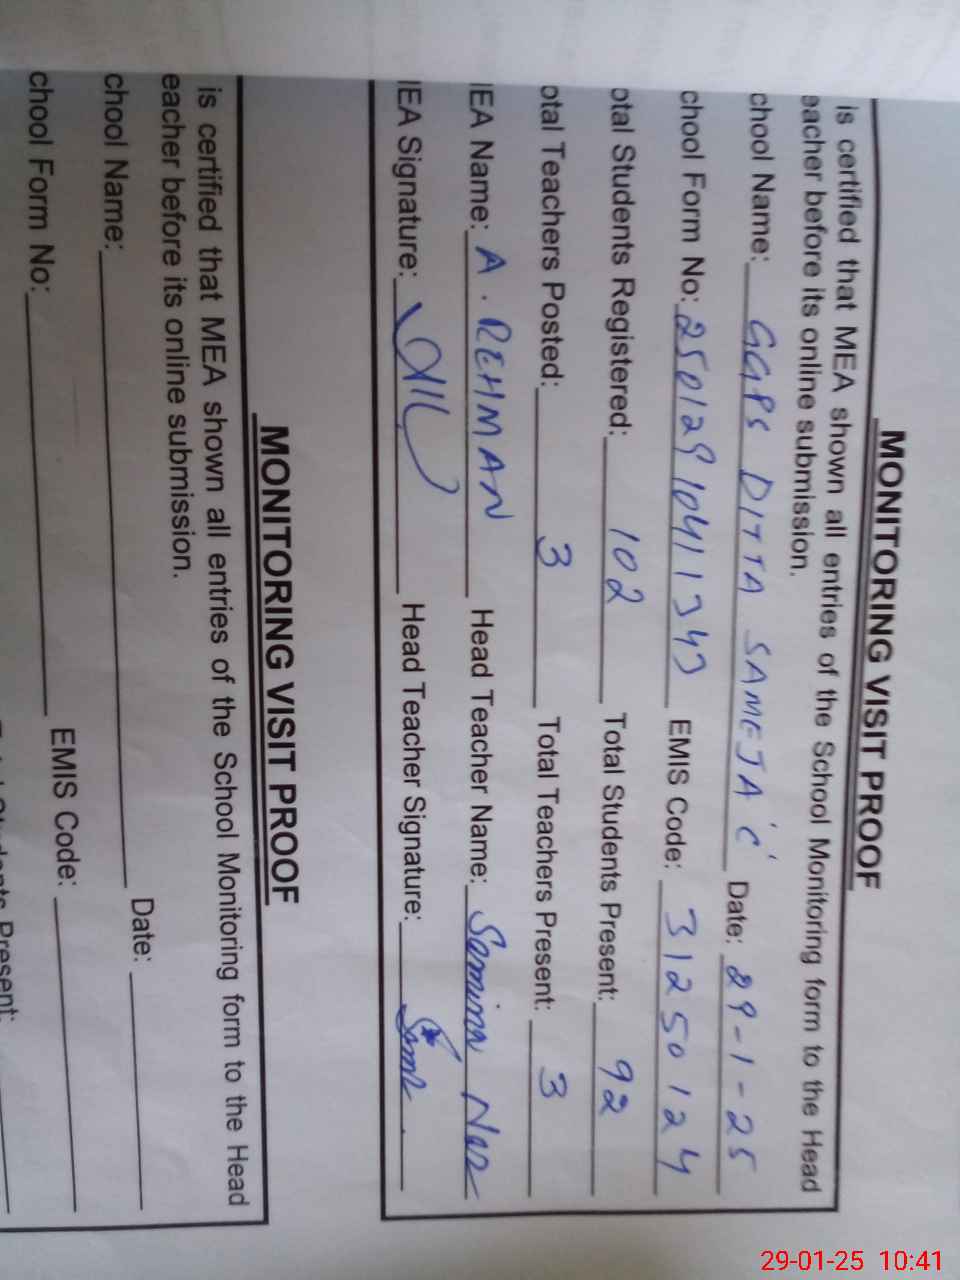 MONITORING VISIT PROOF
is certified that MEA shown all entries of the School Monitoring form to the Head
eacher before its online submission.
chool Name: GGPS DITTA SAMEJA 'C' Date: 29-1-25
chool Form No: 250129104113 EMIS Code: 31250124
otal Students Registered: 102 Total Students Present: 92
otal Teachers Posted: 3 Total Teachers Present: 3
IEA Name: A. REHMAN Head Teacher Name: Samina Naz
IEA Signature: Head Teacher Signature:
MONITORING VISIT PROOF
is certified that MEA shown all entries of the School Monitoring form to the Head
eacher before its online submission.
chool Name: Date:
chool Form No: EMIS Code:
Present:
29-01-25 10:41